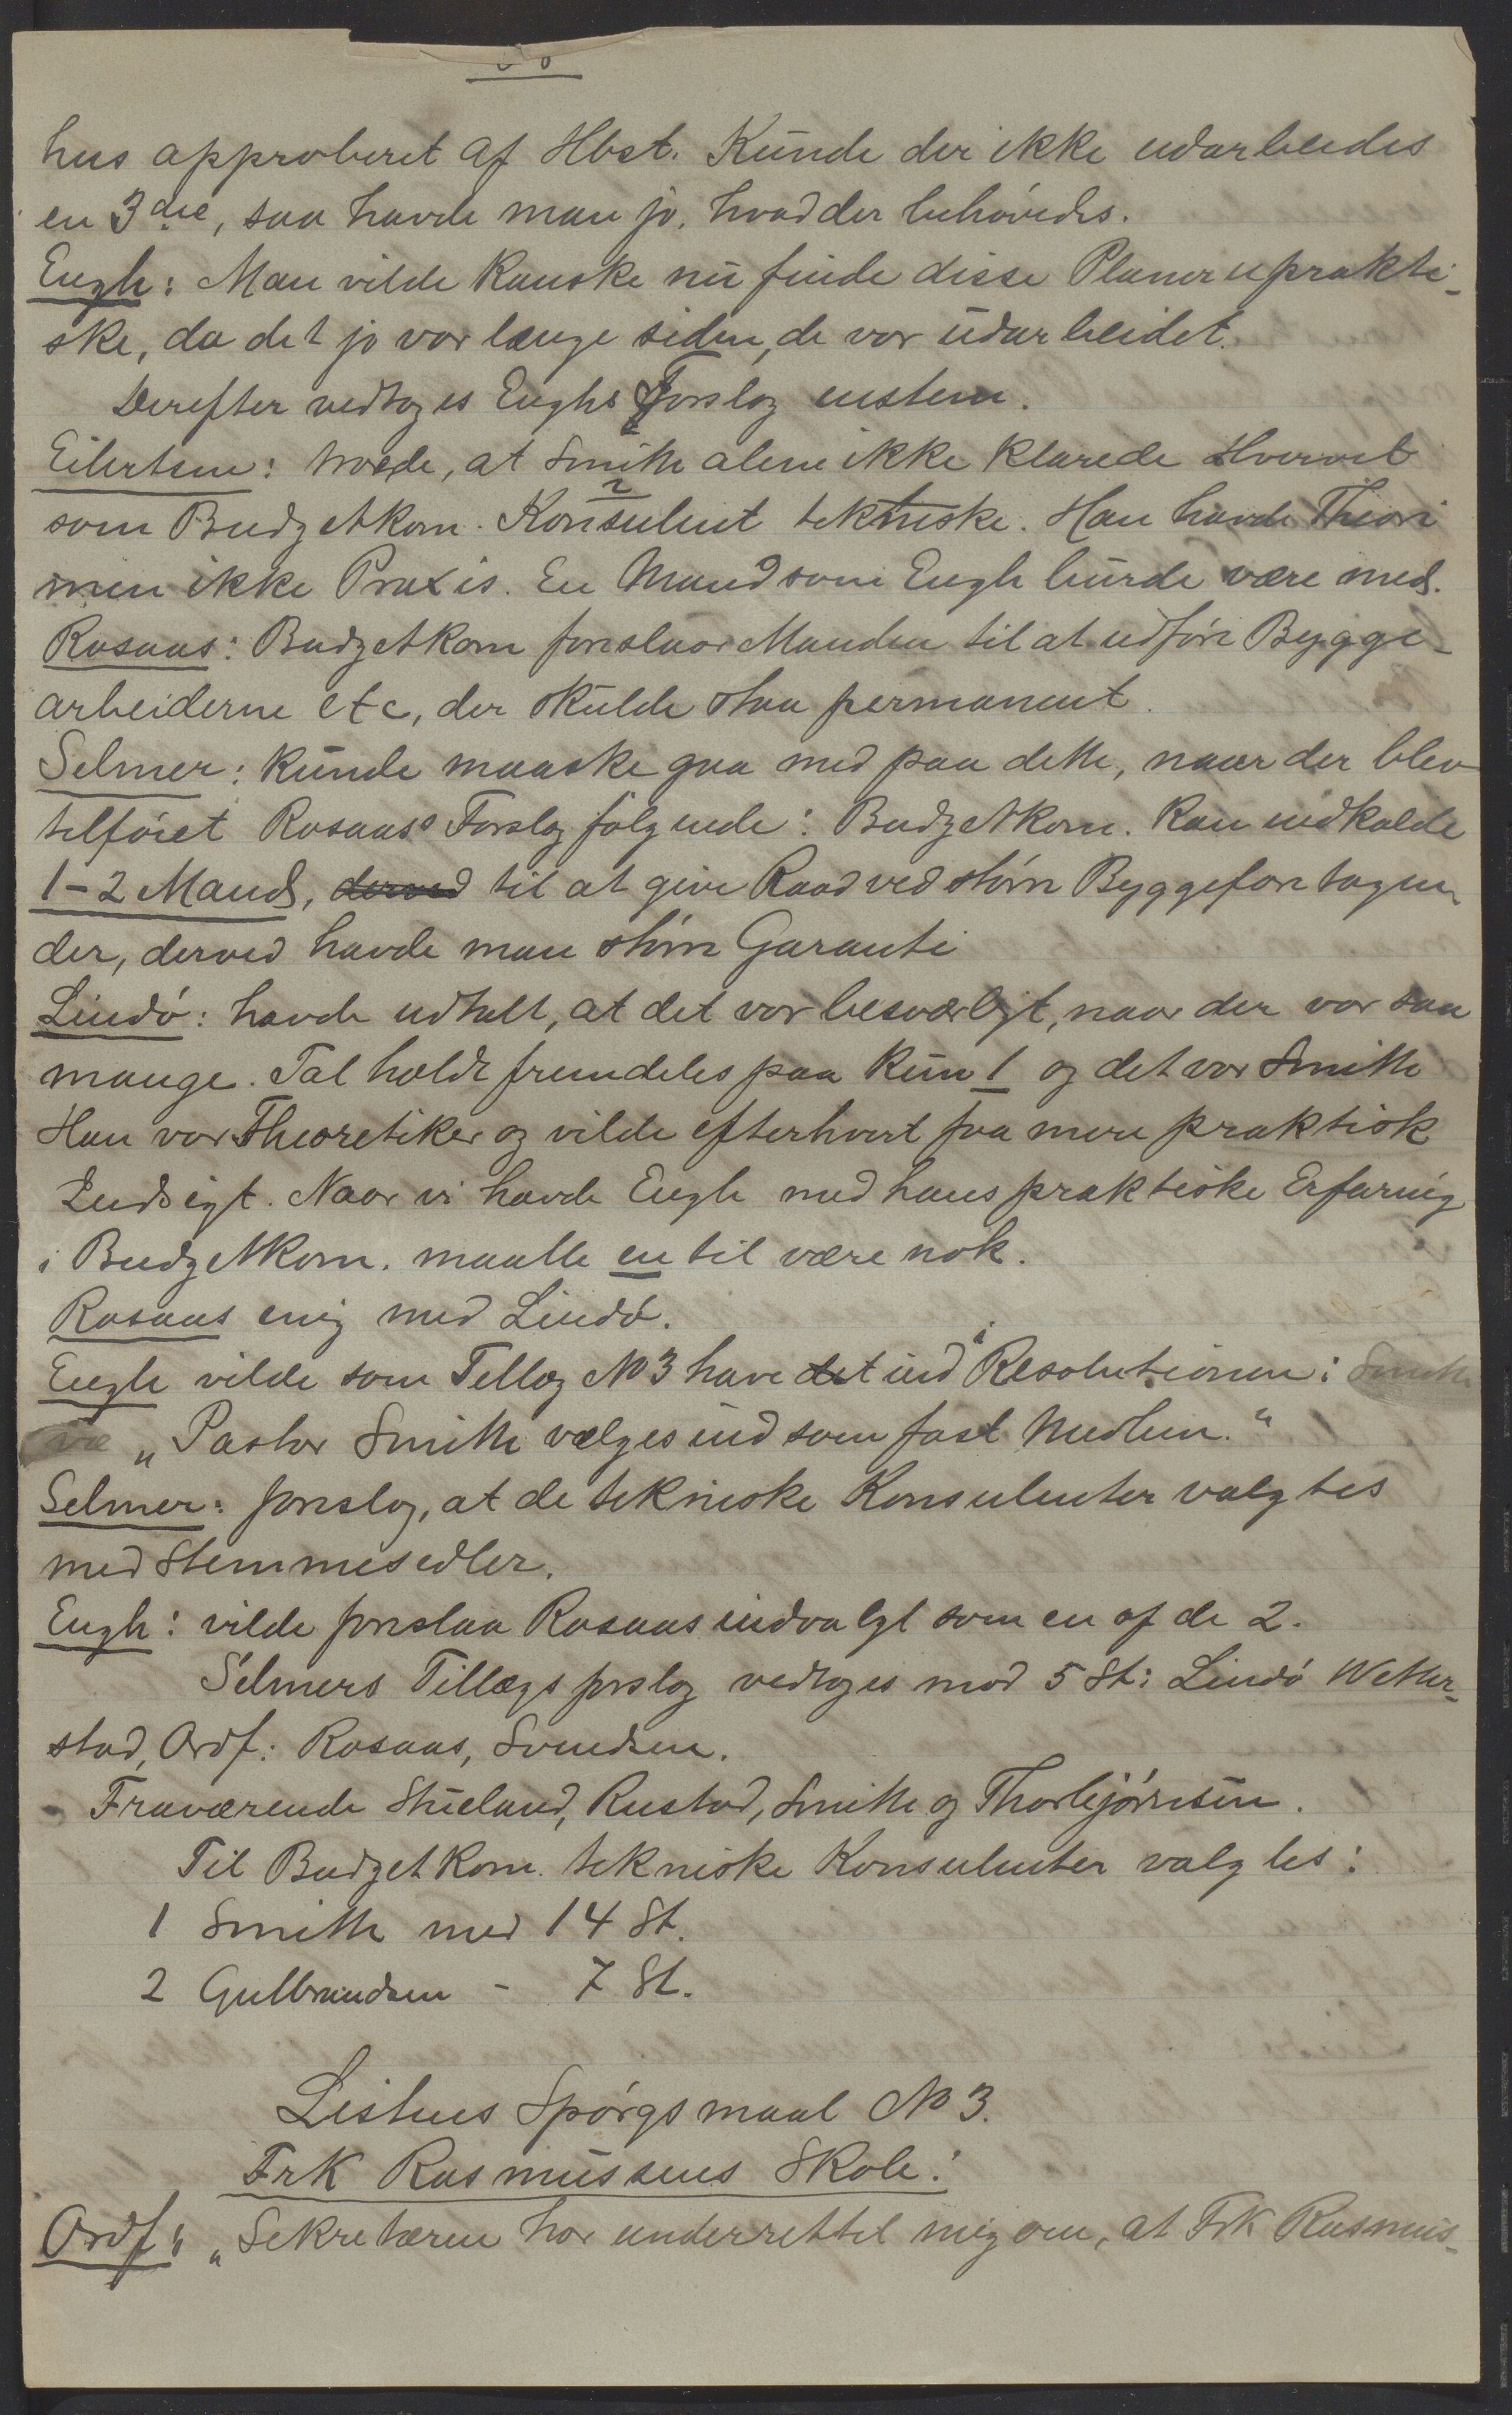 hus approberet af Hbst. Kunde der ikke udarbeides
en 3die, saa havde man jo, hvad der behøvedes.
Engh: Man vilde kanske nu finde disse Planer uprakti-
ske, da det jo var længe siden, de var udarbeidet.
Derefter vedtoges Enghs Forslag enstem.
Eilertsen: troede, at Smith alene ikke klarede Hvervet
som Budgetkom. Konsulent tekniske. Han havde Theori
men ikke Praxis. En Mand som Engh burde være med.
Rosaas: Budgetkom foreslaar Manden til at udføre Bygge-
arbeiderne etc, der skulde staa permanent.
Selmer: kunde maaske gaa med paa dette, naar der blev
tilføiet Rosaas's Forslag følgende: Budgetkom. kan indkalde
1-2 Mand, derved til at give Raad ved større Byggeforetagen-
der, derved havde man større Garanti
Lindø: havde udtalt, at det var besværligt, naar der var saa
mange. Tal holdt fremdeles paa kun 1 og det var Smith
Han var Theoretiker og vilde efterhvert faa mere praktisk
Indsigt. Naar vi havde Engh med hans praktiske Erfaring
i Budgetkom. maatte en til være nok.
Rosaas enig med Lindø.
Engh vilde som Tillæg No 3 have det ind i Resolutionen: Smith
væ „Pastor Smith vælges ind som fast Medlem."
Selmer: foreslog, at de tekniske Konsulenter valgtes
med Stemmesedler.
Engh: vilde foreslaa Rosaas indvalgt som en af de 2.
Selmers Tillægsforslag vedtoges mod 5 St: Lindø Wetter-
stad, Ordf: Rosaas, Svendsen.
Fraværende Stueland, Rustad, Smith og Thorbjørnsen.
Til Budgetkom. tekniske Konsulenter valgtes:
1 Smith med 14 St.
2 Gulbrandsen - 7 St.
Listens Spørgsmaal No 3.
Frk Rasmussens Skole:
Ordf: „Sekretæren har underrettet mig om, at Frk Rasmus-